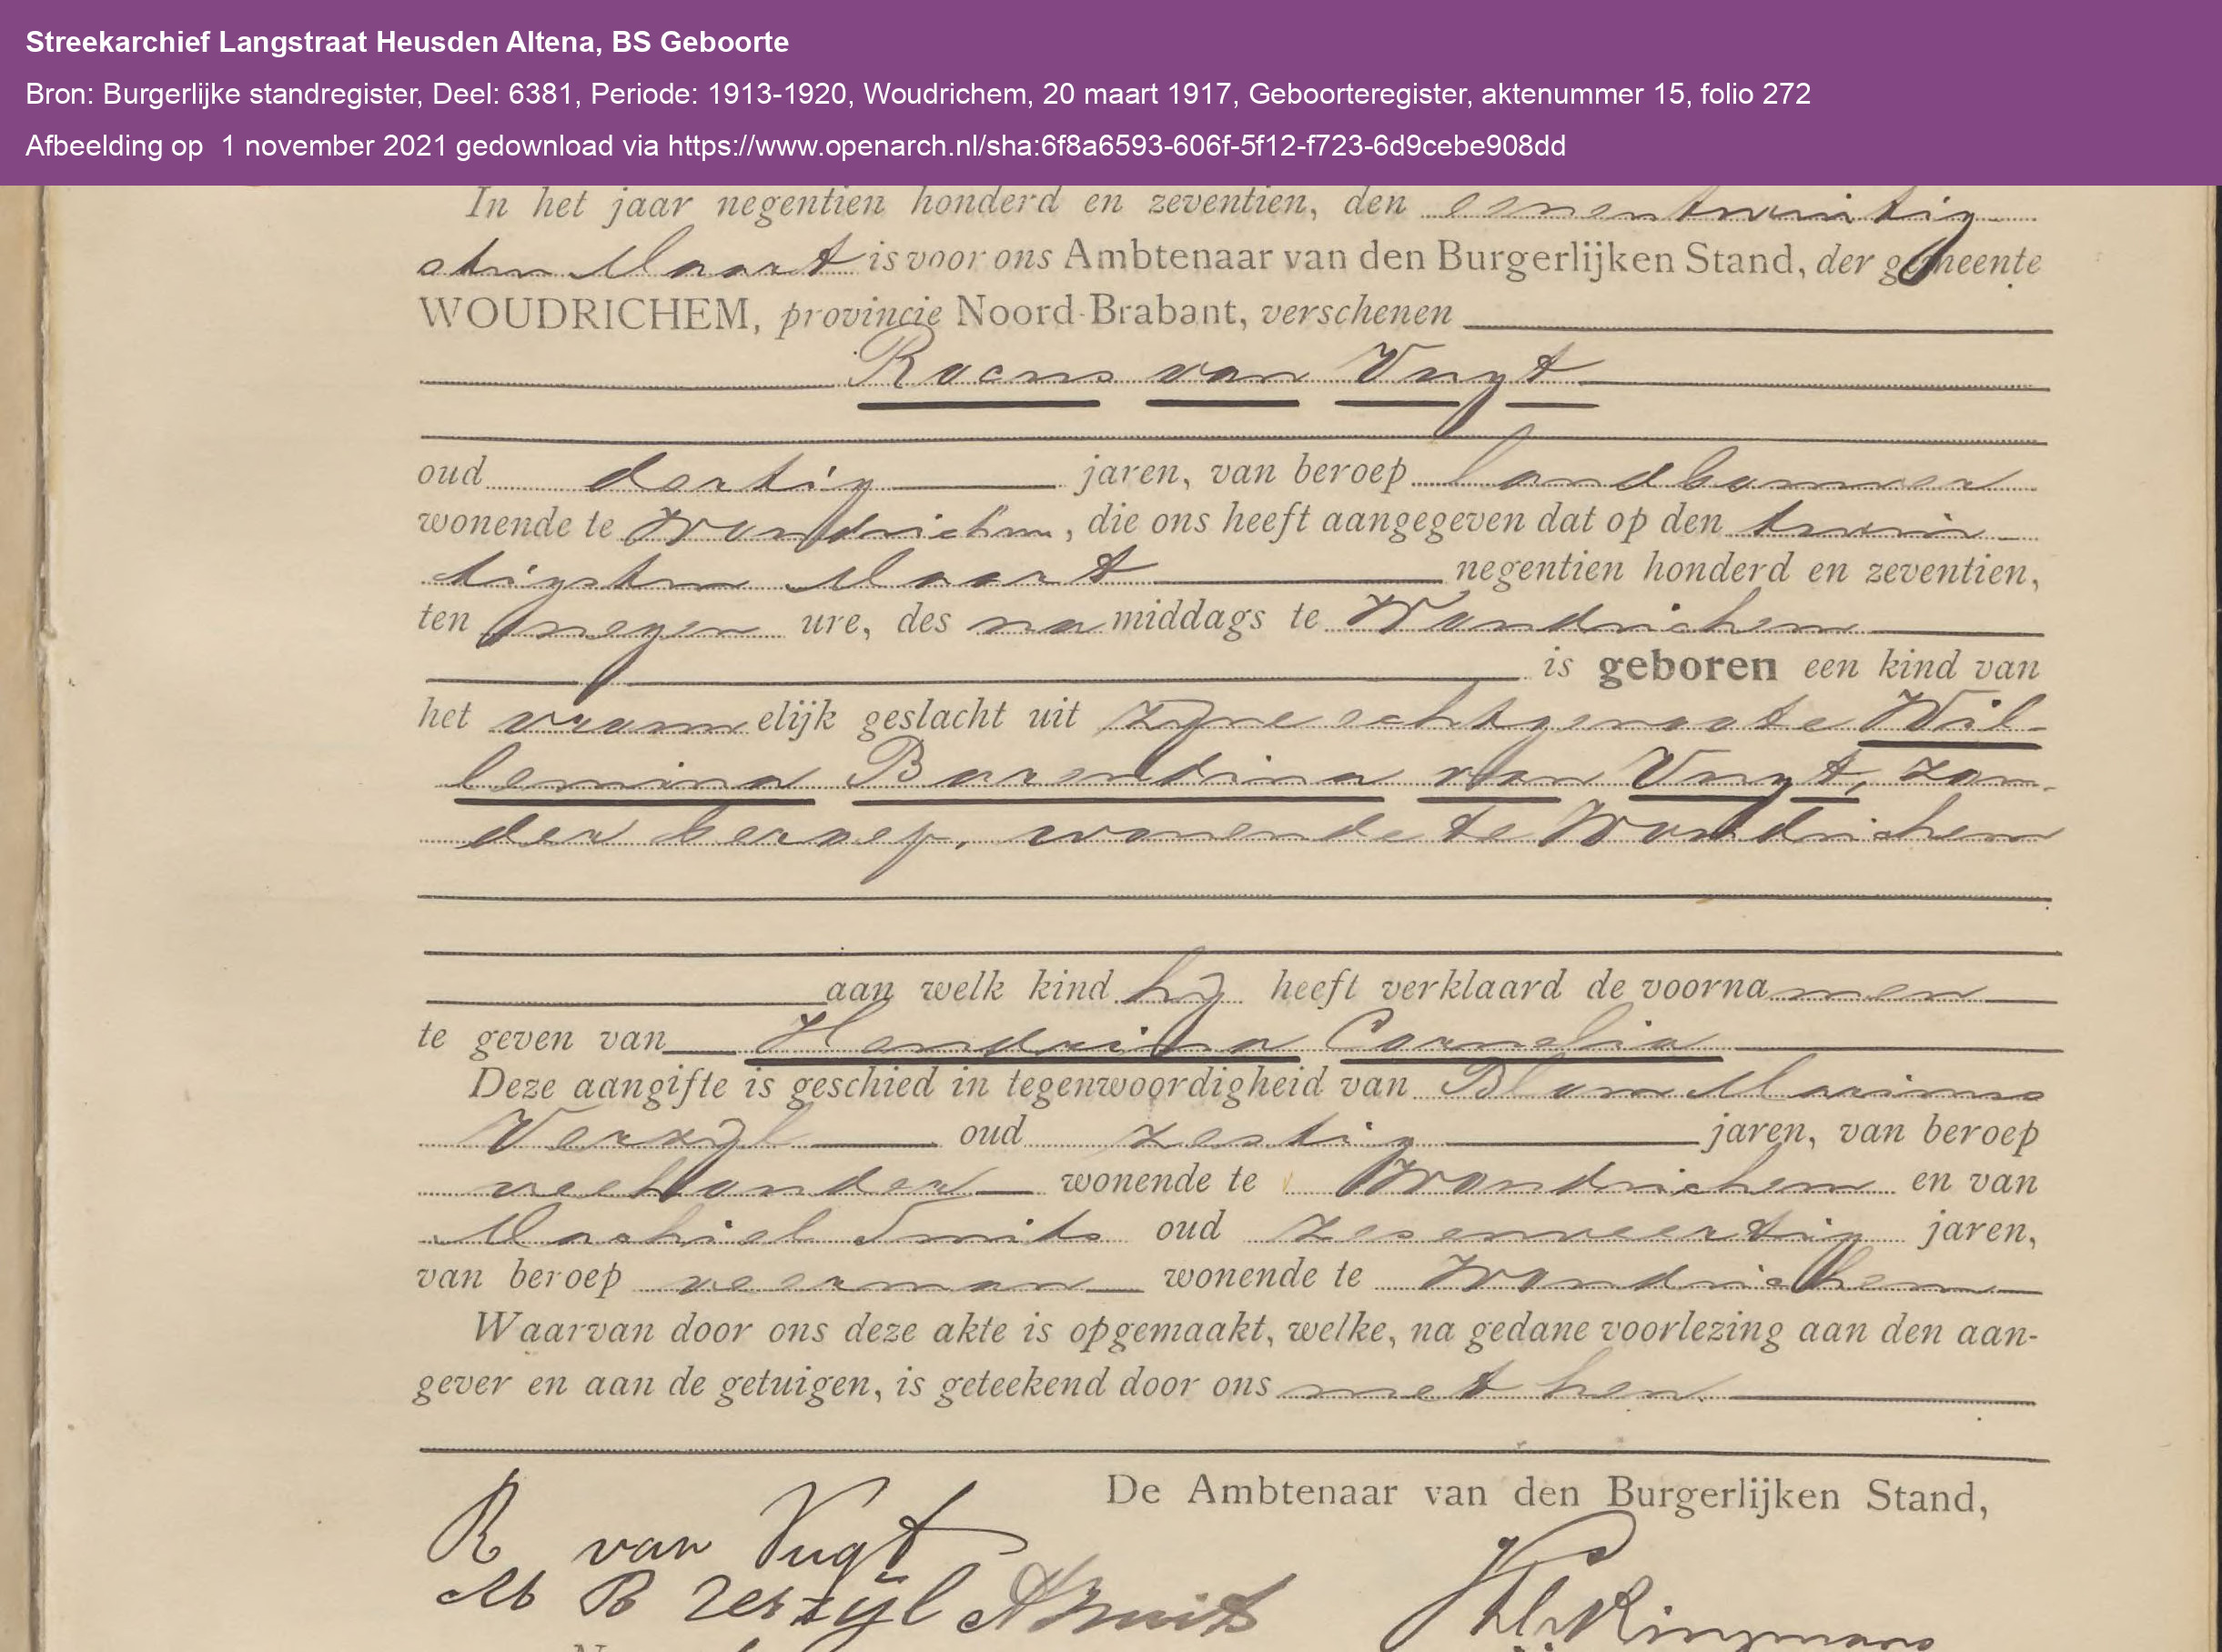 Streekarchief Langstraat Heusden Altena, BS Geboorte
Bron: Burgerlijke standregister, Deel: 6381, Periode: 1913-1920, Woudrichem, 20 maart 1917, Geboorteregister, aktenummer 15, folio 272
Afbeelding op 1 november 2021 gedownload via https://www.openarch.nl/sha:6f8a6593-606f-5f12-f723-6d9cebe908dd
In het jaar negentien honderd en zeventien, den eenentwintig
sten Maart is voor ons Ambtenaar van den Burgerlijken Stand, der gemeente
WOUDRICHEM, provincie Noord-Brabant, verschenen
van Vugt
oud dertig jaren, van beroep landbouwer
wonende te Woudrichem, die ons heeft aangegeven dat op den twin
tigsten Maart negentien honderd en zeventien,
ten negen ure, des na middags te Woudrichem
is geboren een kind van
het vrouwelijk geslacht uit zijne echtgenoote Wil-
lemina Barendina van Vugt, zon-
der beroep, wonende te Woudrichem
aan welk kind hij heeft verklaard de voornamen
te geven van Hendrina Cornelia
Deze aangifte is geschied in tegenwoordigheid van Marinus
Verzijl oud zestig jaren, van beroep
veehouder wonende te Woudrichem en van
Machiel Smits oud zesenveertig jaren,
van beroep veerman wonende te Woudrichem
Waarvan door ons deze akte is opgemaakt, welke, na gedane voorlezing aan den aan-
gever en aan de getuigen, is geteekend door ons met hen.
De Ambtenaar van den Burgerlijken Stand,
R van Vugt
M B Verzijl Smits